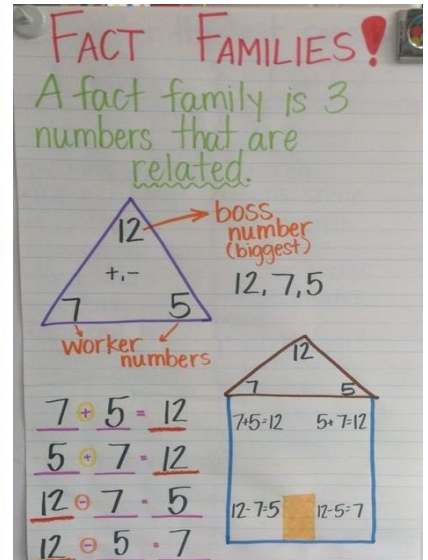 FACT FAMILIES!
A fact family is 3
numbers that are
related.
12
+,-
7 5
boss
number
(biggest)
12, 7, 5
worker
numbers
7 + 5 = 12
5 + 7 = 12
12 - 7 = 5
12 - 5 = 7
12
7 5
7+5=12 5+7=12
12-7=5 12-5=7